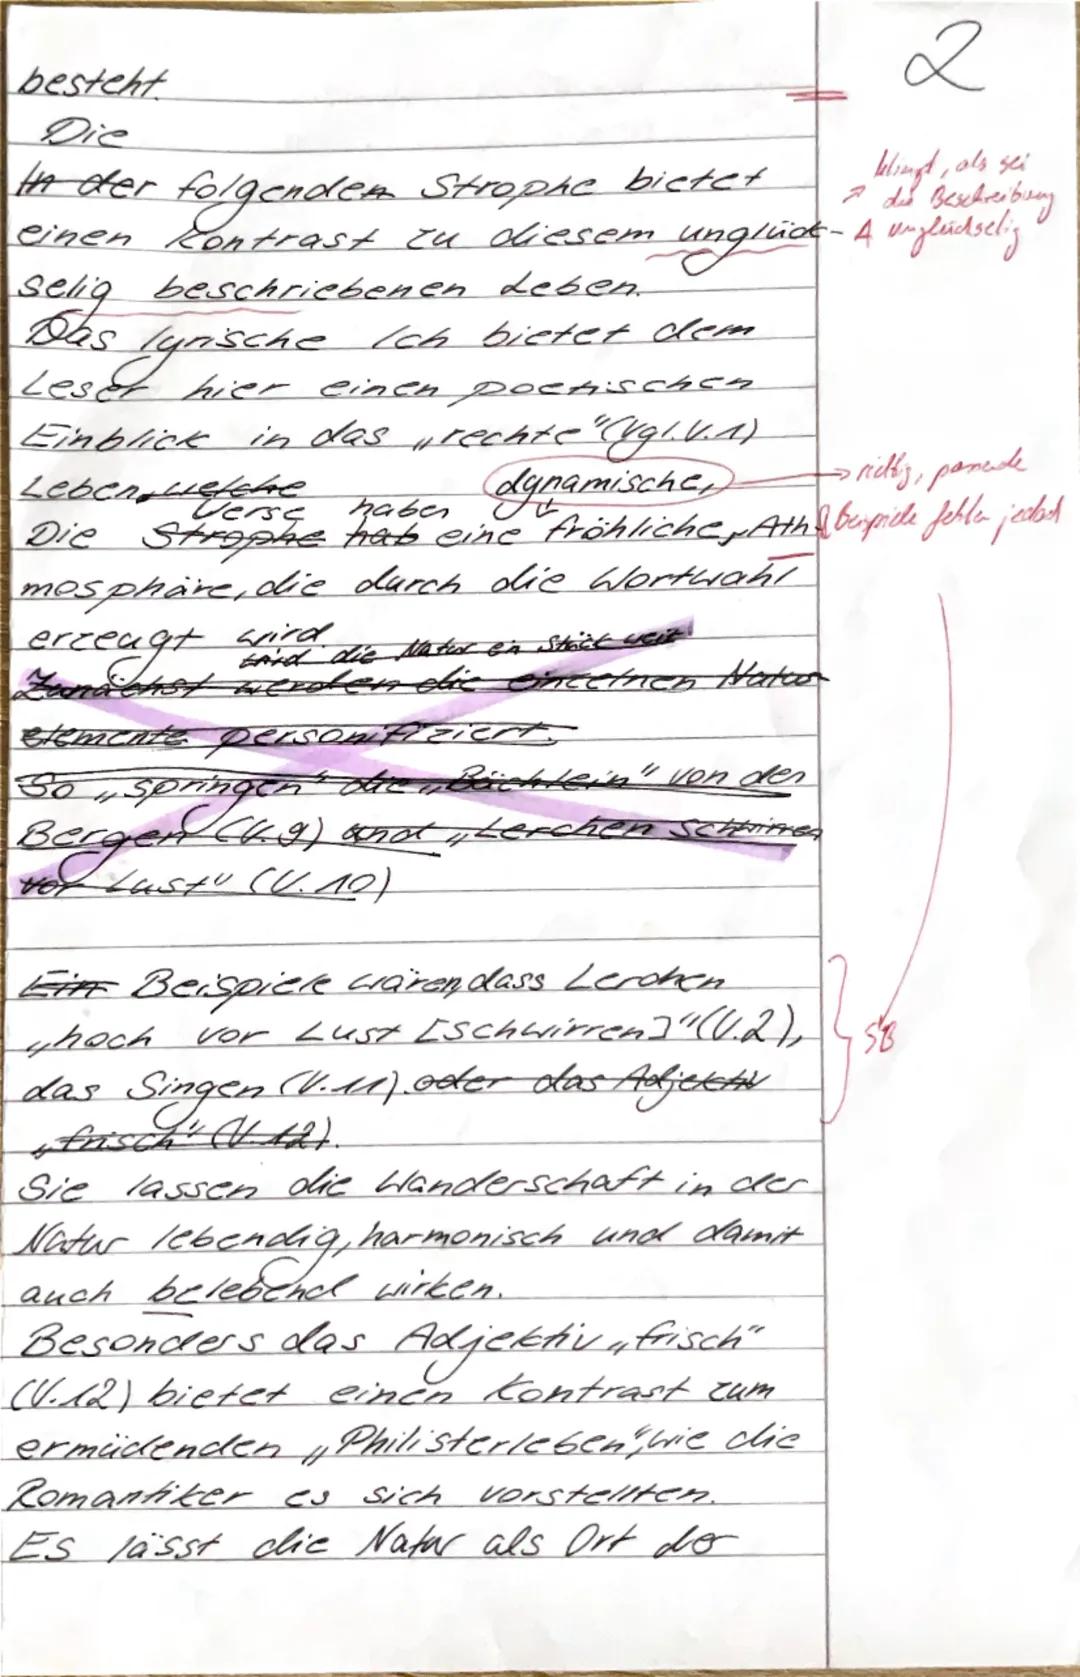 2
besteht.
Die
In der folgenden Strophe bietet
einen Kontrast zu diesem unglück-
selig beschriebenen Leben.
klingt, als sei
die Beschreibung
A unglückselig
Das lyrische Ich bietet dem
Leser hier einen poetischen
Einblick in das „rechte" (Vgl. V. 1)
Leben, welche
dynamische,
Verse haben
Die Strophe hab eine fröhliche, Ath-
mosphäre, die durch die Wortwahl
erzeugt wird.
→ richtig, passende
Beispiele fehlen jedoch
wird die Natur ein Stück weit
Zunächst werden die einzelnen Natur
elemente personifiziert.
So „springen" die „Bächlein" von den
Bergen (V. 9) und „Lerchen schwirren
vor Lust" (V. 10)
Ein Beispiele wären, dass Lerchen
„hoch vor Lust [schwirren]" (V. 2),
das Singen (V. 11). oder das Adjektiv
„frisch" (V. 12).
SB
Sie lassen die Wanderschaft in der
Natur lebendig, harmonisch und damit
auch belebend wirken.
Besonders das Adjektiv „frisch"
(V. 12) bietet einen Kontrast zum
ermüdenden „Philisterleben", wie die
Romantiker es sich vorstellten.
Es lässt die Natur als Ort der